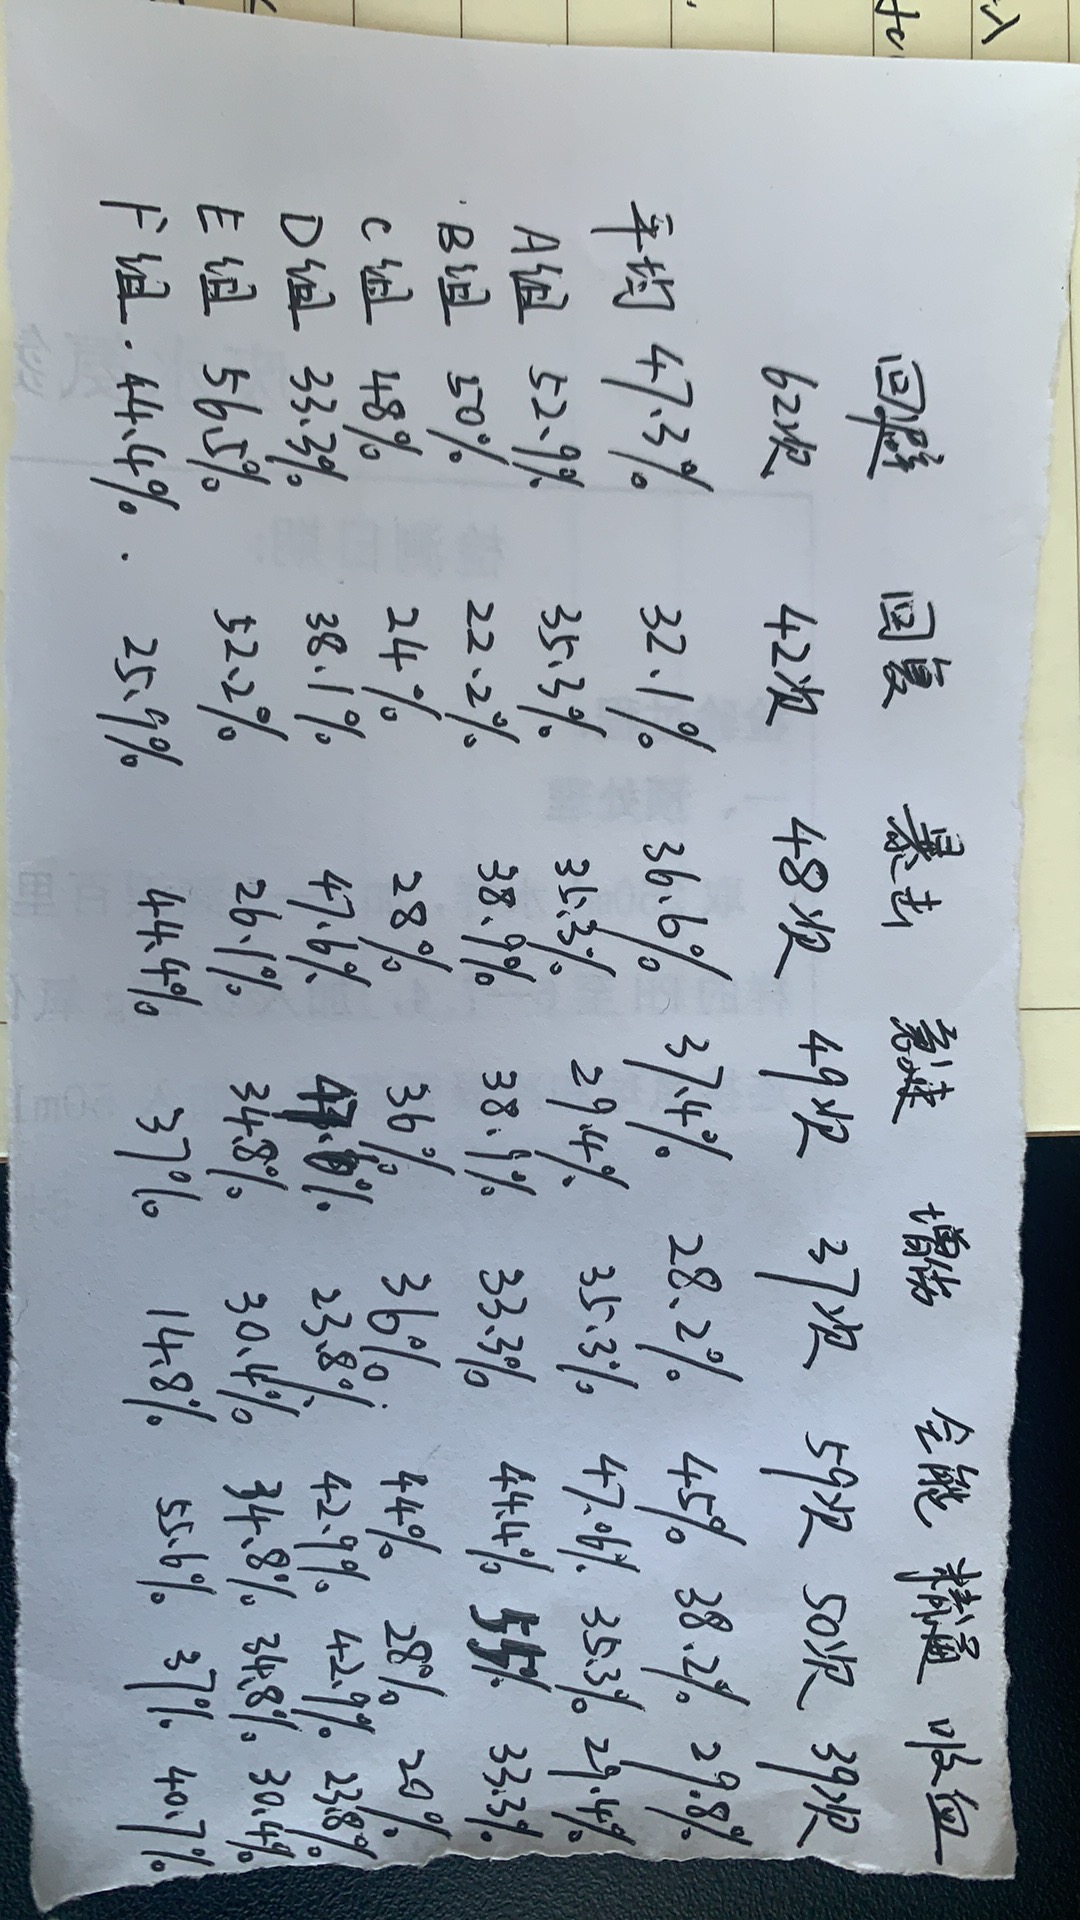 回避 回复 暴击 急速 增伤 全能 精通 吸血
62次 42次 48次 49次 37次 59次 50次 39次
平均 47.3% 32.1% 36.6% 37.4% 28.2% 45% 38.2% 29.8%
A组 52.9% 35.3% 35.3% 29.4% 35.3% 47.06% 35.3% 29.4%
B组 50% 22.2% 38.9% 38.9% 33.3% 44.4% 33.3%
C组 48% 24% 28% 36% 36% 44% 28% 20%
D组 33.3% 38.1% 47.6% 23.8% 42.9% 42.9% 23.8%
E组 56.5% 52.2% 26.1% 34.8% 30.4% 34.8% 34.8% 30.4%
F组 44.4% 25.9% 44.4% 37% 14.8% 55.6% 37% 40.7%